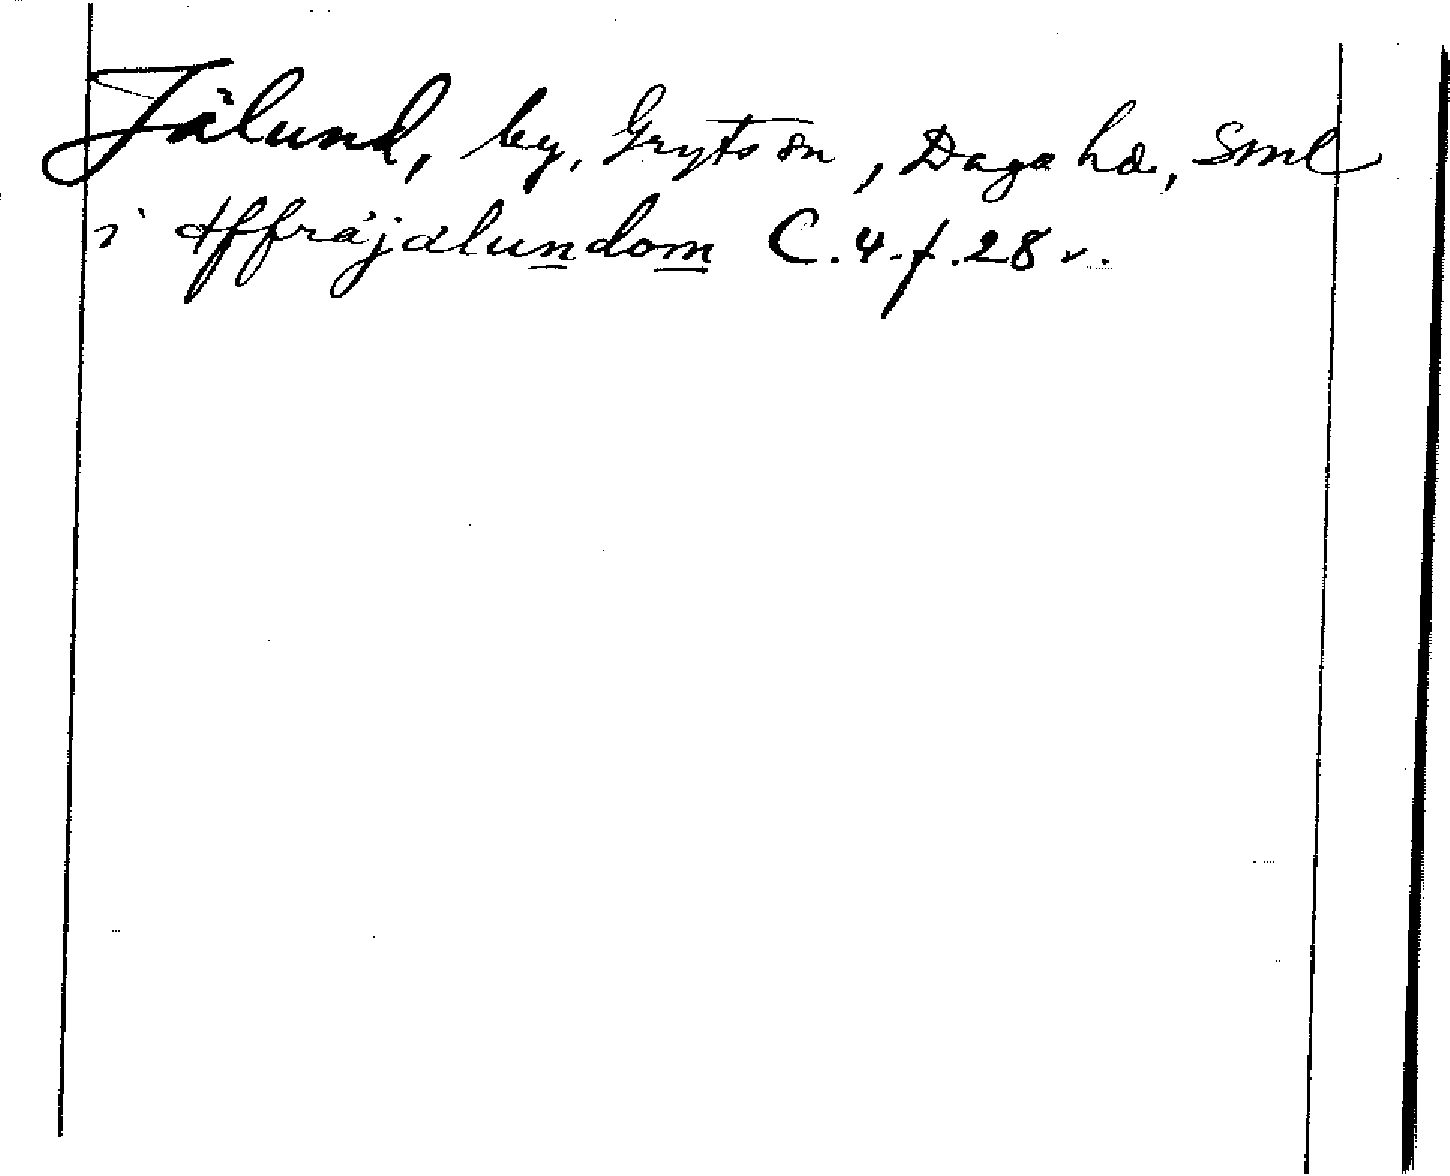 Jälund, by, Gryts sn, Daga hd, Sml
i Offräjalundom C.4.f.28 v.